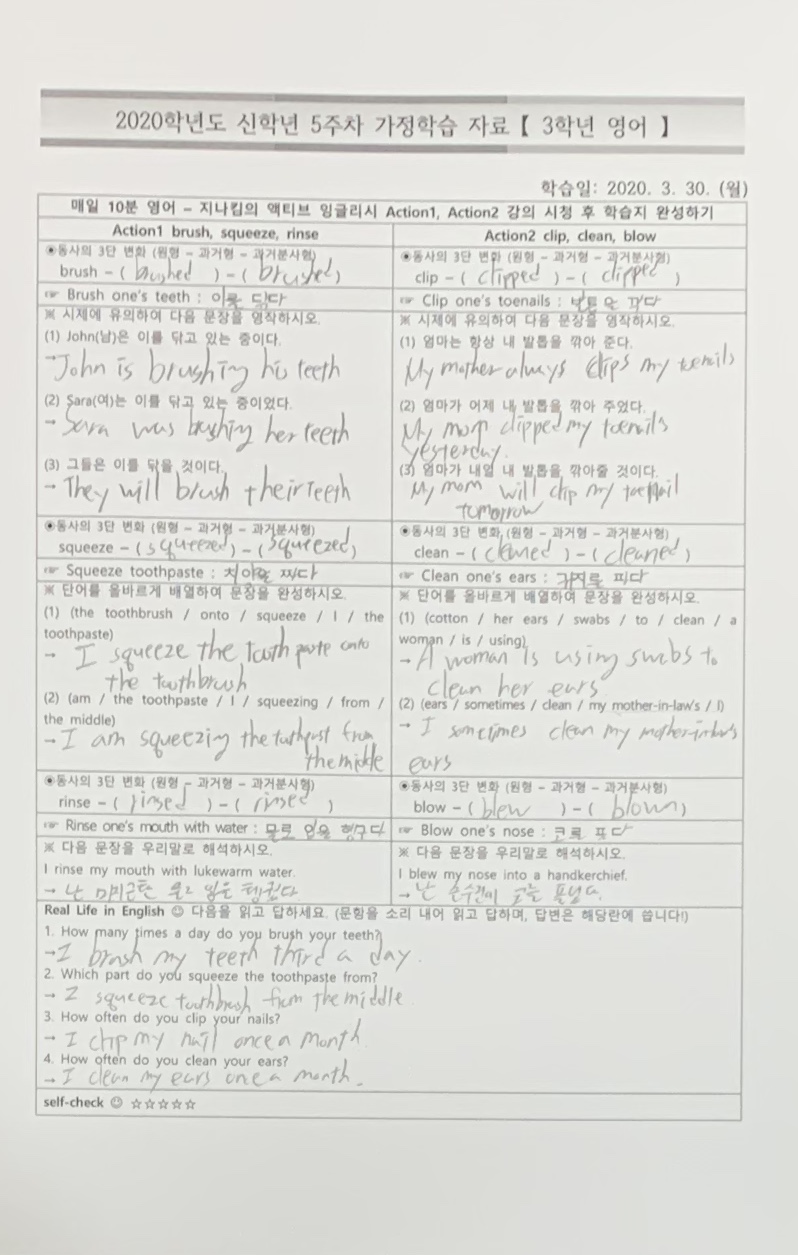 2020학년도 신학년 5주차 가정학습 자료【 3학년 영어 】
학습일: 2020. 3. 30. (월)
매일 10분 영어 – 지나킴의 액티브 잉글리시 Action1, Action2 강의 시청 후 학습지 완성하기
Action1 brush, squeeze, rinse
◉동사의 3단 변화 (원형 – 과거형 – 과거분사형)
brush – ( brushed ) – ( brushed )
☞ Brush one's teeth : 이를 닦다
※ 시제에 유의하여 다음 문장을 영작하시오.
(1) John(남)은 이를 닦고 있는 중이다.
→ John is brushing his teeth
(2) Sara(여)는 이를 닦고 있는 중이었다.
→ Sara was brushing her teeth
(3) 그들은 이를 닦을 것이다.
→ They will brush their Teeth
◉동사의 3단 변화 (원형 – 과거형 – 과거분사형)
squeeze – ( squeezed ) – ( squeezed )
☞ Squeeze toothpaste : 치약을 짜다
※ 단어를 올바르게 배열하여 문장을 완성하시오.
(1) (the toothbrush / onto / squeeze / I / the
toothpaste)
→ I squeeze the toothpaste onto
the toothbrush
(2) (am / the toothpaste / I / squeezing / from /
the middle)
→ I am squeezing the from
the middle
◉동사의 3단 변화 (원형 – 과거형 – 과거분사형)
rinse – ( rinsed ) – ( rinsed )
☞ Rinse one's mouth with water : 물로 입을 헹구다
※ 다음 문장을 우리말로 해석하시오.
I rinse my mouth with lukewarm water.
→ 난 미지근한 물로 입을 헹궜다
Action2 clip, clean, blow
◉동사의 3단 변화 (원형 – 과거형 – 과거분사형)
clip – ( clipped ) – ( clipped )
☞ Clip one's toenails :
※ 시제에 유의하여 다음 문장을 영작하시오.
(1) 엄마는 항상 내 발톱을 깎아 준다.
My mother always clips my toenails
(2) 엄마가 어제 내 발톱을 깎아 주었다.
My mom clipped my toenails
yesterday.
(3) 엄마가 내일 내 발톱을 깎아줄 것이다.
My mom will clip my toenail
tomorrow
◉동사의 3단 변화 (원형 – 과거형 – 과거분사형)
clean – ( cleaned ) – ( cleaned )
☞ Clean one's ears :
※ 단어를 올바르게 배열하여 문장을 완성하시오.
(1) (cotton / her ears / swabs / to / clean / a
woman / is / using)
→ A woman is using swabs to
clean her ears
(2) (ears / sometimes / clean / my mother-in-law's / I)
→ I sometimes clean my mother-in-law's
ears
◉동사의 3단 변화 (원형 – 과거형 – 과거분사형)
blow – ( blew ) – ( blown )
☞ Blow one's nose : 코를 푸다
※ 다음 문장을 우리말로 해석하시오.
I blew my nose into a handkerchief.
→ 난 코를
Real Life in English ☺ 다음을 읽고 답하세요. (문항을 소리 내어 읽고 답하며, 답변은 해당란에 씁니다!)
1. How many times a day do you brush your teeth?
→ I brush my teeth third a day.
2. Which part do you squeeze the toothpaste from?
→ I squeeze toothbrush from the middle
3. How often do you clip your nails?
→ I clip my nail once a month
4. How often do you clean your ears?
→ I clean my ears once a month.
self-check ☺ ☆☆☆☆☆